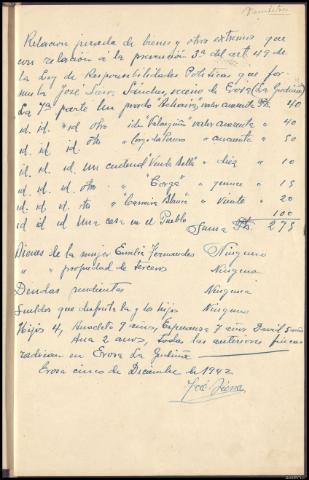 Relacion jurada de bienes y otros extremos que
con relacion a la prevención 3ª del artº 49 de
la Ley de Responsabilidades Politicas que for
mula José Sanchez, vecino de Erosa (La Gudiña)
La 7ª parte un prado valor cuarenta Pts. 40
id. id. id otro id valor cuarenta " 40
id. id. id. otro " cincuenta " 50
id. id. id. un cortend " diez " 10
id. id. id. otro " quince " 15
id. id. id. otro " Blanca " veinte " 20
id id id. Una casa en el Pueblo 100
Suma Pts 275
Bienes de la mujer Emilia Fernandez Ninguno
" " propiedad de terceros Ninguna
Deudas pendientes Ninguna
Sueldos que disfruta el y los hijos Ninguno
Hijos 4, Anacleto 9 años, Esperanza 7 años David 5 años
Ana 2 años, todas las anteriores fincas
radican en Erosa La Gudiña
Erosa cinco de Diciembre de 1942
José